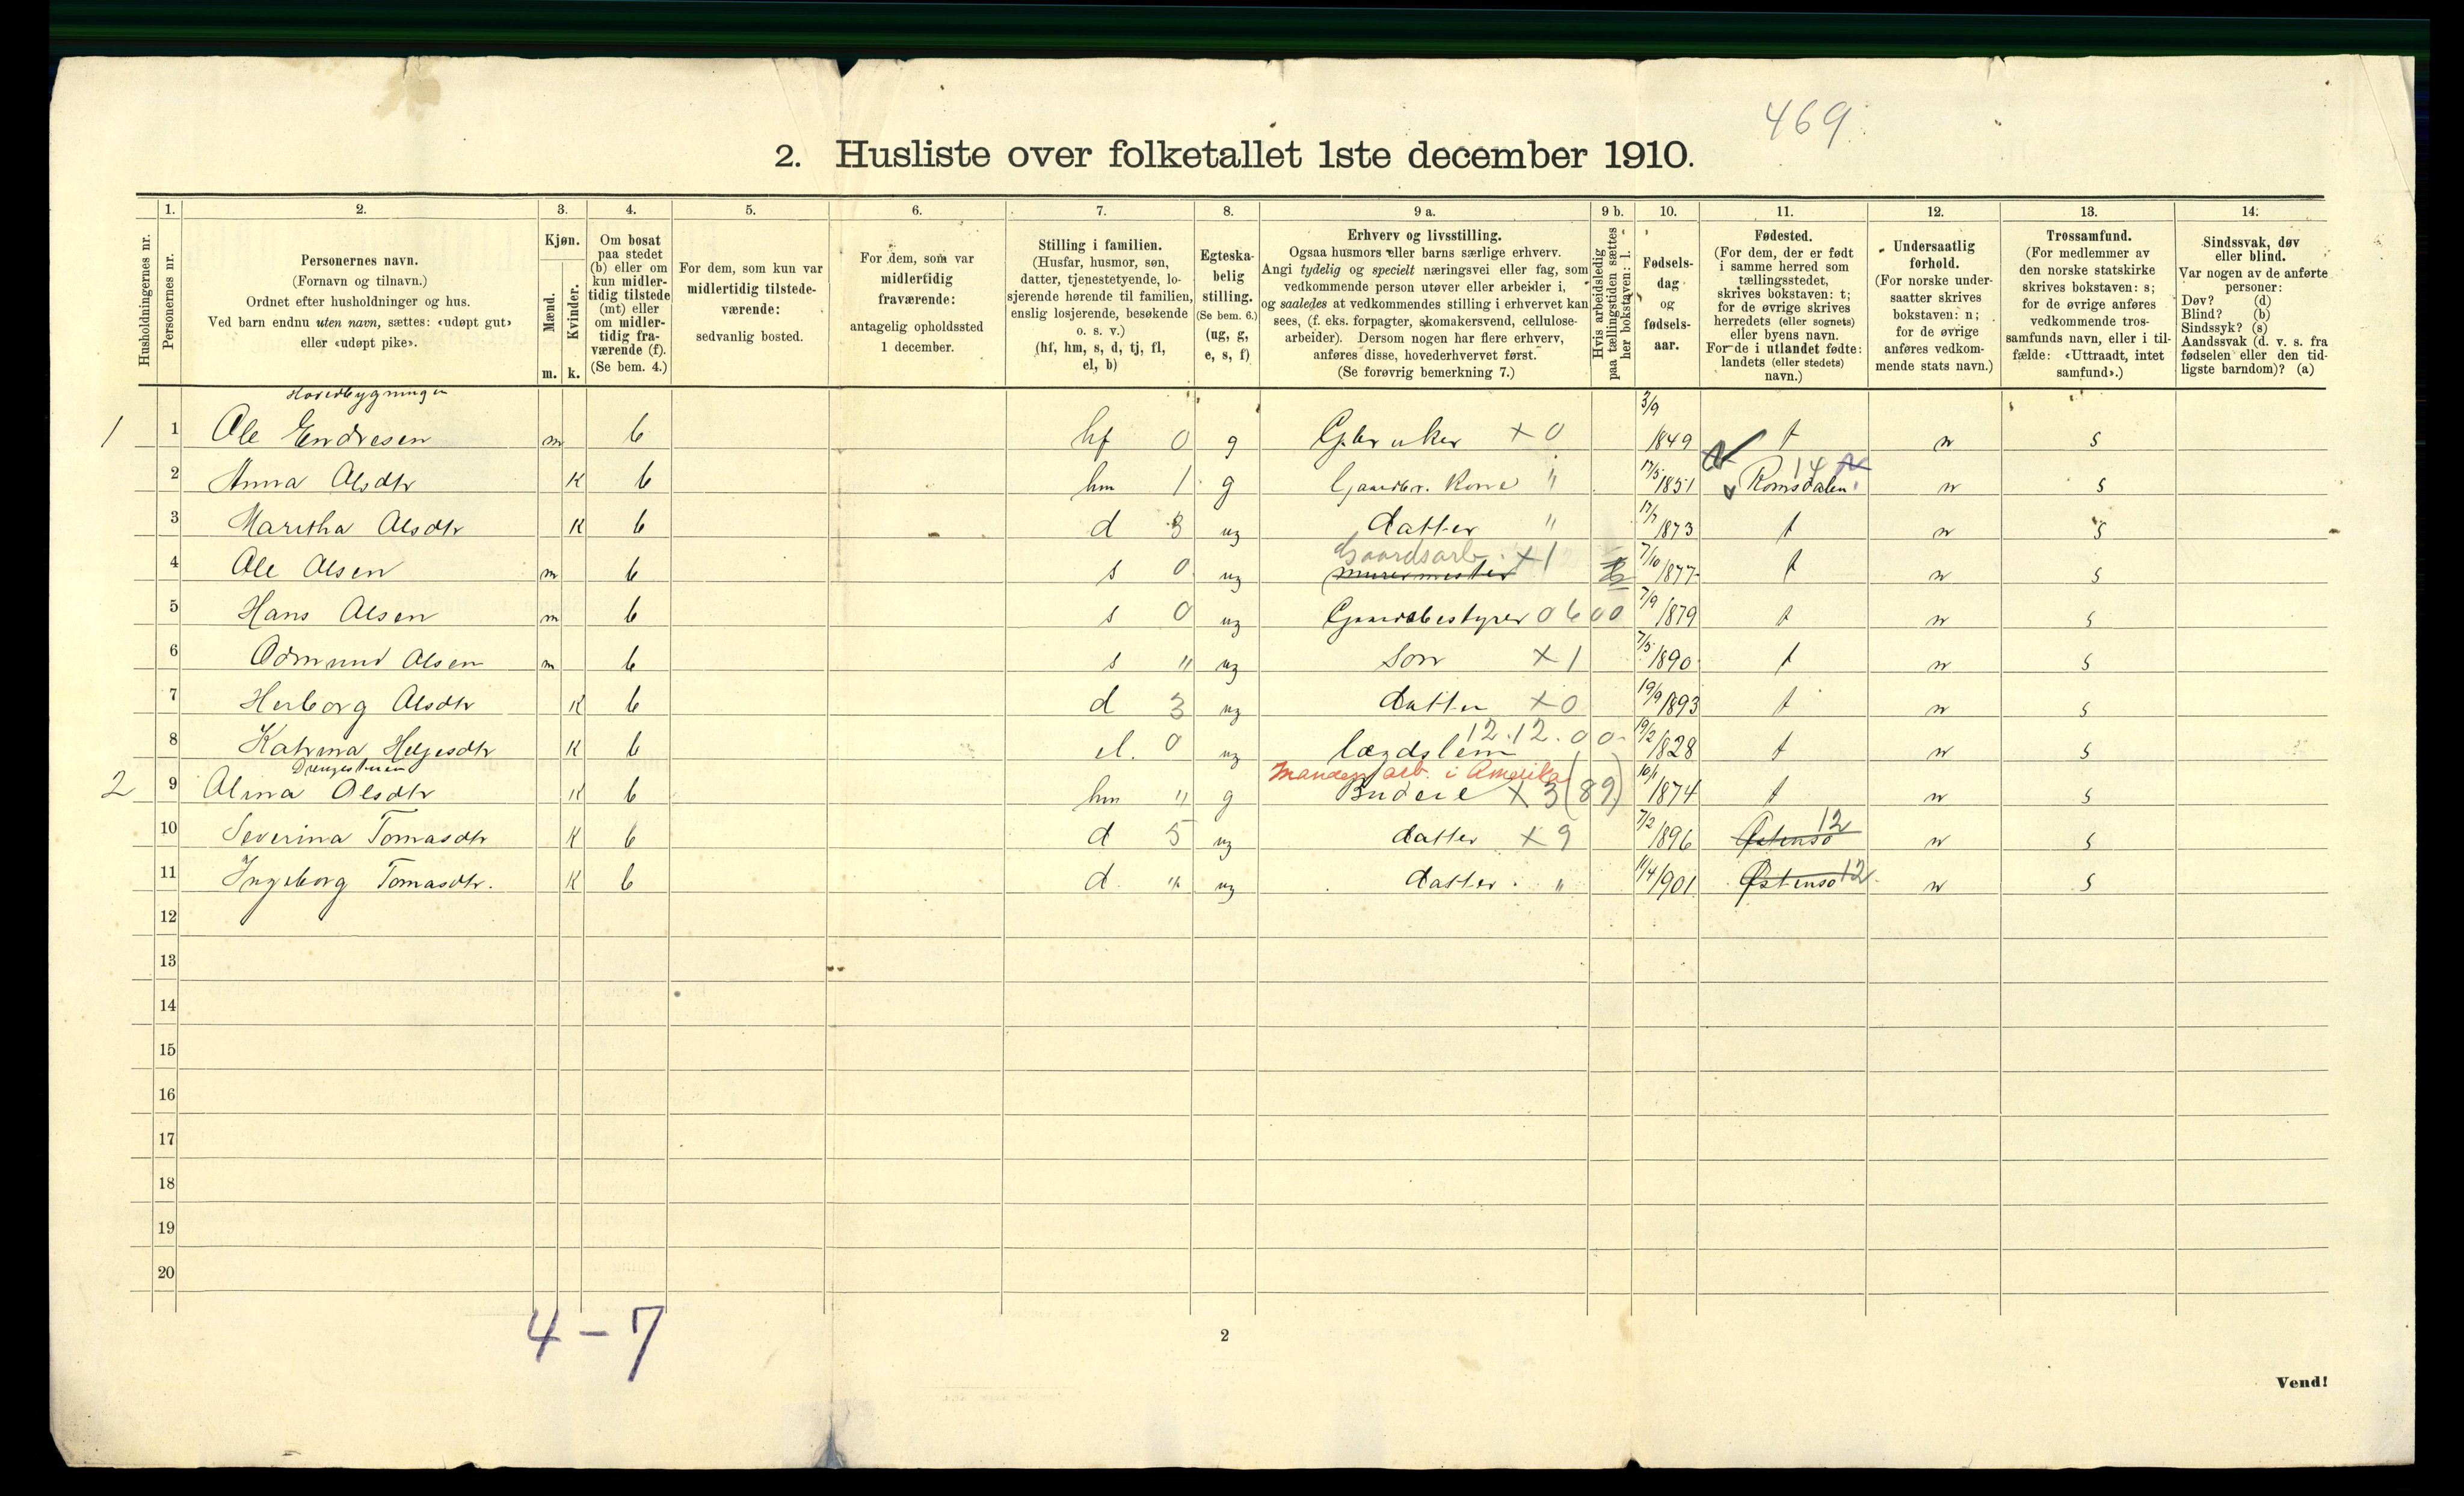 469.
2. Husliste over folketallet 1ste december 1910.
Husholdningernes nr.
1. Personernes nr.
2. Personernes navn.
(Fornavn og tilnavn.)
Ordnet efter husholdninger og hus.
Ved barn endnu uten navn, sættes: «udøpt gut»
eller «udøpt pike».
3. Kjøn.
Mænd. m.
Kvinder. k.
4. Om bosat
paa stedet
(b) eller om
kun midler-
tidig tilstede
(mt) eller
om midler-
tidig fra-
værende (f).
(Se bem. 4.)
5. For dem, som kun var
midlertidig tilstede-
værende:
sedvanlig bosted.
6. For dem, som var
midlertidig
fraværende:
antagelig opholdssted
1 december.
7. Stilling i familien.
(Husfar, husmor, søn,
datter, tjenestetyende, lo-
sjerende hørende til familien,
enslig losjerende, besøkende
o. s. v.)
(hf, hm, s, d, tj, fl,
el, b)
8. Egteska-
belig
stilling.
(Se bem. 6.)
(ug, g,
e, s, f)
9 a. Erhverv og livsstilling.
Ogsaa husmors eller barns særlige erhverv.
Angi tydelig og specielt næringsvei eller fag, som
vedkommende person utøver eller arbeider i,
og saaledes at vedkommendes stilling i erhvervet kan
sees, (f. eks. forpagter, skomakersvend, cellulose-
arbeider). Dersom nogen har flere erhverv,
anføres disse, hovederhvervet først.
(Se forøvrig bemerkning 7.)
9 b. Hvis arbeidsledig
paa tællingstiden sættes
her bokstaven: l.
10. Fødsels-
dag
og
fødsels-
aar.
11. Fødested.
(For dem, der er født
i samme herred som
tællingsstedet,
skrives bokstaven: t;
for de øvrige skrives
herredets (eller sognets)
eller byens navn.
For de i utlandet fødte:
landets (eller stedets)
navn.)
12. Undersaatlig
forhold.
(For norske under-
saatter skrives
bokstaven: n;
for de øvrige
anføres vedkom-
mende stats navn.)
13. Trossamfund.
(For medlemmer av
den norske statskirke
skrives bokstaven: s;
for de øvrige anføres
vedkommende tros-
samfunds navn, eller i til-
fælde: «Uttraadt, intet
samfund».)
14. Sindssvak, døv
eller blind.
Var nogen av de anførte
personer:
Døv? (d)
Blind? (b)
Sindssyk? (s)
Aandssvak (d. v. s. fra
fødselen eller den tid-
ligste barndom)? (a)
Hovedbygningen
1 1 Ole Endresen m b hf 0 g Gbruker x 0 3/9 1849 t n s
2 Anna Olsdtr k b hm 1 g Gaardbr. Kone " 17/5 1851 Romsdalen 14 n s
3 Maritha Olsdtr k b d 3 ug datter " 17/7 1873 t n s
Gaardsarb.
4 Ole Olsen m b s 0 ug murermester x 1 7/10 1877 t n s
5 Hans Olsen m b s 0 ug Gaardsbestyrer 0 6 0 0 7/9 1879 t n s
6 Odmund Olsen m b s " ug Søn x 1 7/5 1890 t n s
7 Herborg Olsdtr k b d 3 ug datter x 0 19/9 1893 t n s
12.12.00
8 Katrina Helgesdtr k b el. 0 ug lægdslem 19/2 1828 t n s
Drengestuen
Manden arb. i Amerika
2 9 Alina Olsdtr k b hm " g Budeie x 3 (89) 10/1 1874 t n s
10 Severina Tomasdtr k b d 5 ug datter x 9 7/2 1896 Østensø 12 n s
11 Ingeborg Tomasdtr. k b d " ug datter " 11/4 1901 Østensø 12 n s
12
13
14
15
16
17
18
19
20
4 – 7
2
Vend!